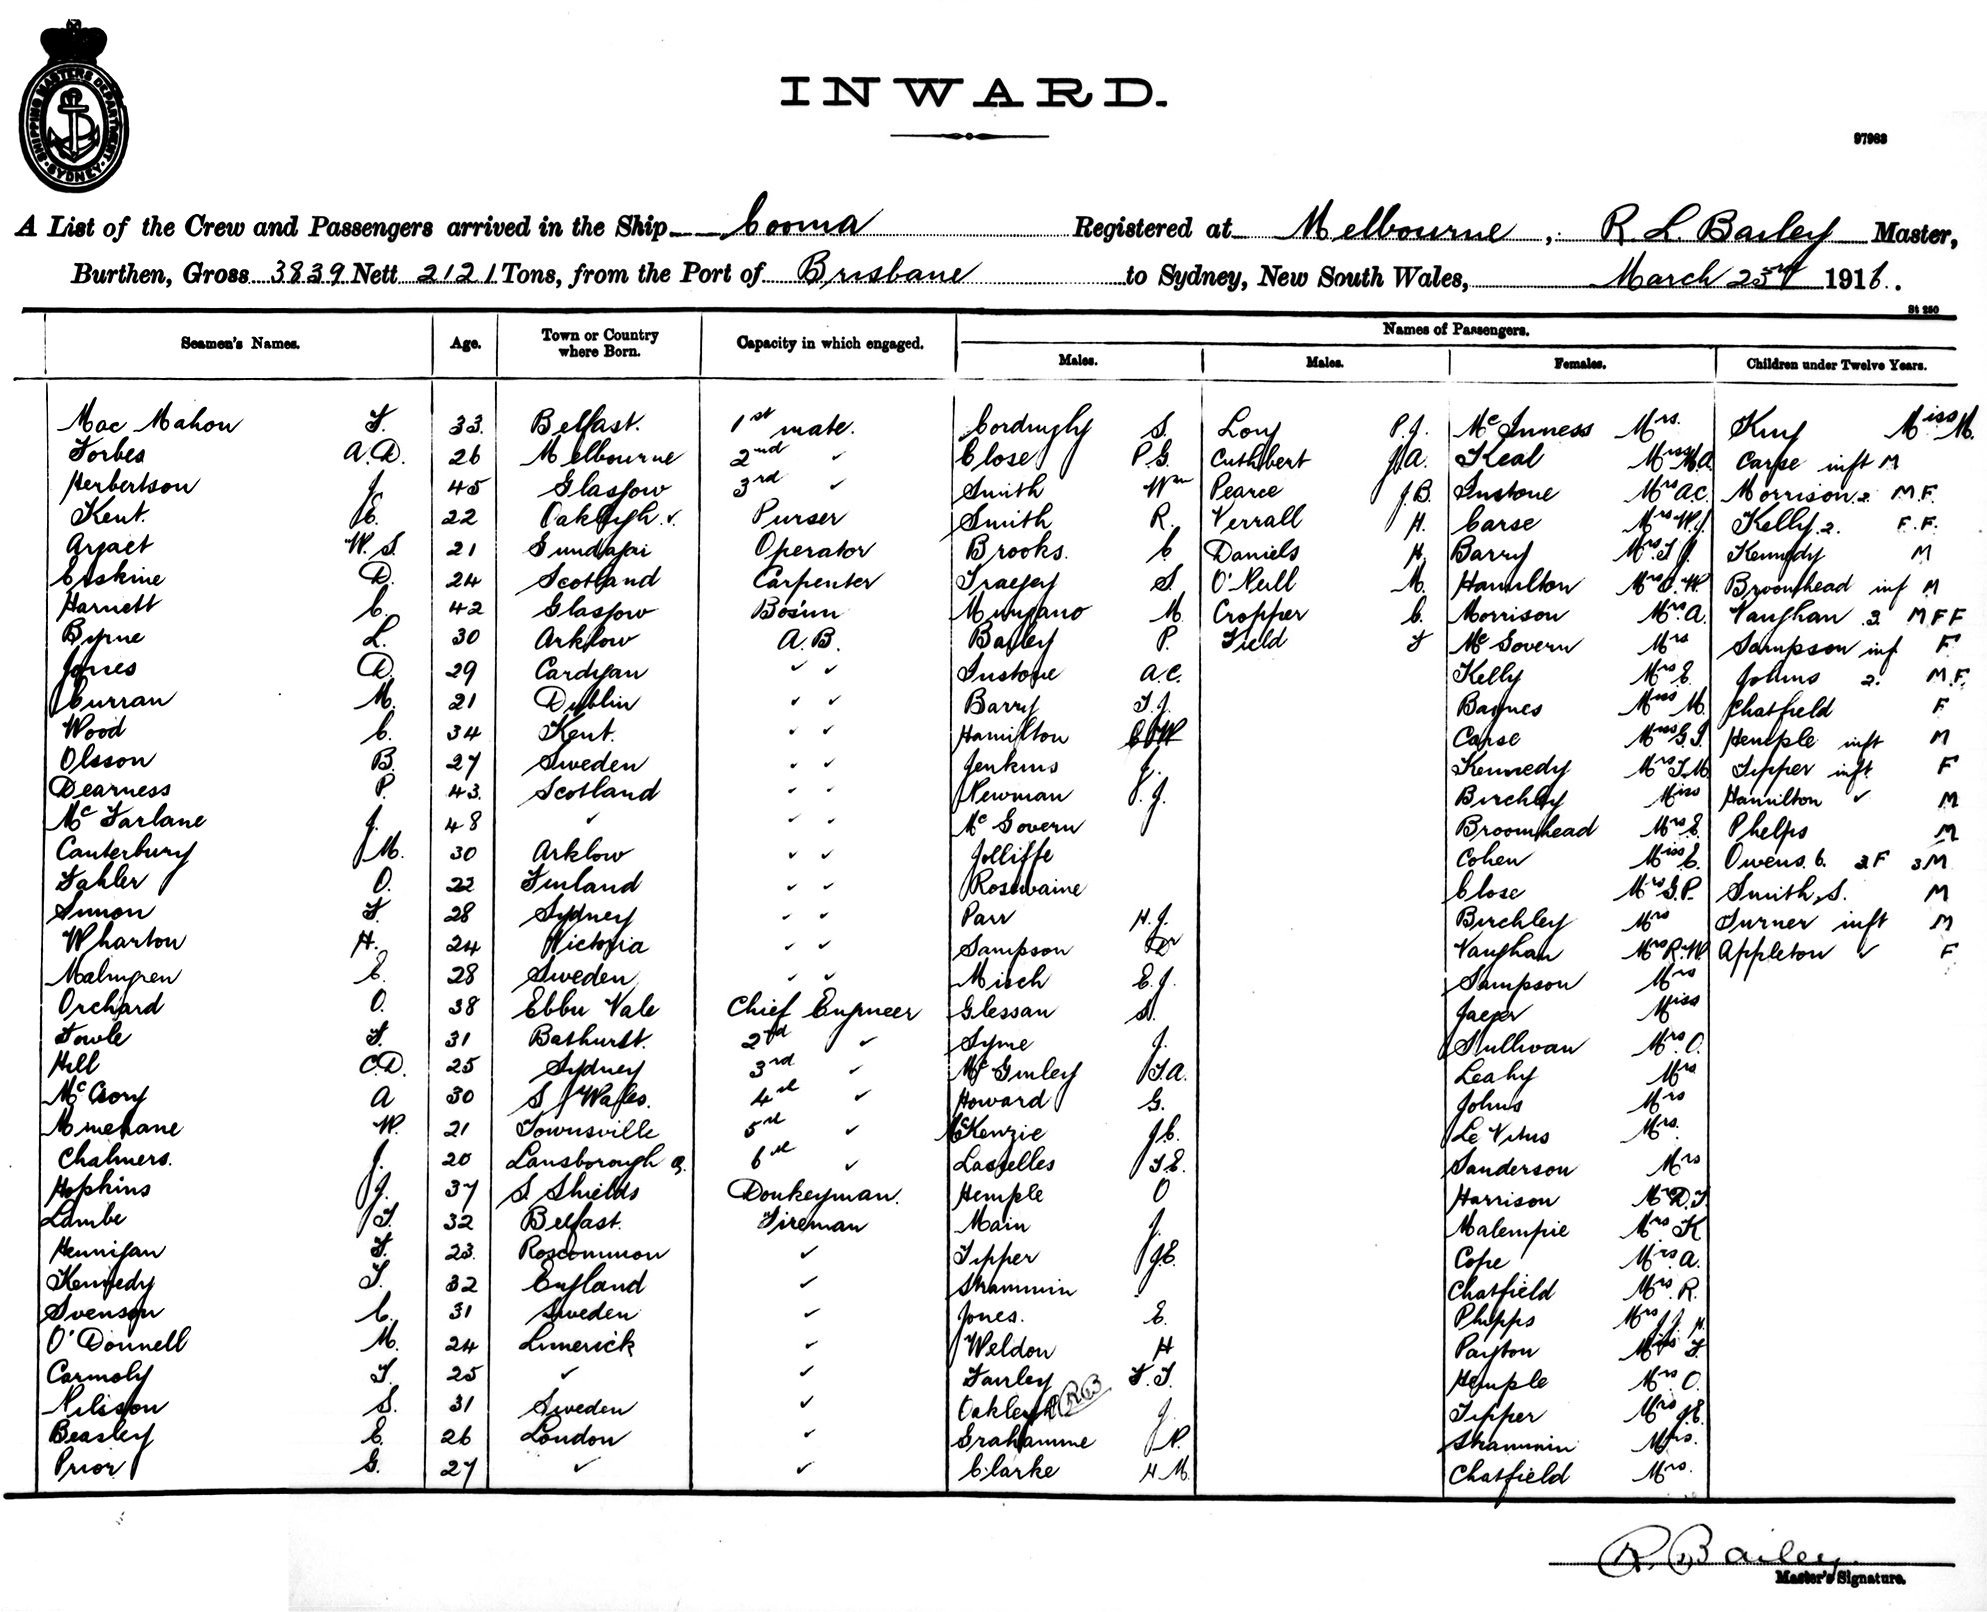 SHIPPING MASTERS DEPARTMENT
SYDNEY
INWARD.
97963
A List of the Crew and Passengers arrived in the Ship Cooma Registered at Melbourne, R. L. Bailey Master,
Burthen, Gross 3839 Nett 2121 Tons, from the Port of Brisbane to Sydney, New South Wales, March 23rd 1916.
St 250
Seamen's Names. Age. Town or Country where Born. Capacity in which engaged. Names of Passengers.
Males. Males. Females. Children under Twelve Years.
Mac Mahon F. 33. Belfast. 1st mate. Cordingly S. Long P.J. McInness Mrs. King Miss M.
Forbes A.D. 26 Melbourne 2nd ✓ Close P.G. Cuthbert J.A. Keal Miss M.A. Carse inft M
Herbertson J. 45 Glasgow 3rd ✓ Smith Wm Pearce J.B. Instone Mrs A.C. Morrison 2 M.F.
Kent. E. 22 Oakleigh. v. Purser Smith R. Verrall H. Carse Mrs W.J. Kelly. 2. F.F.
W.S. 21 Gundagai Operator Brooks. C. Daniels H. Barry Mrs T.J. Kennedy M
Erskine D. 24 Scotland Carpenter Traeger S. O'Neill M. Hamilton Mrs C.W. Broomhead inf M
Harnett C. 42 Glasgow Bosun Mungano M. Cropper C. Morrison Mrs. A. Vaughan 3. M F F
Byrne L. 30 Arklow A.B. Bailey P. Field F McGovern Mrs Sampson inf F
Jones D. 29 Cardigan ✓ ✓ Instone A.C. Kelly Mrs E. Johns 2. M.F.
Curran M. 21 Dublin ✓ ✓ Barry T.J. Baynes Miss M. Chatfield F
Wood C. 34 Kent. ✓ ✓ Hamilton C W Carse Miss G.I. Hemple inft M
Olsson B. 27 Sweden ✓ ✓ Jenkins J. Kennedy Mrs T.M. Tipper inft F
Dearness P. 43. Scotland ✓ ✓ Newman P.J. Birchley Miss Hamilton ✓ M
McFarlane J. 48 ✓ ✓ ✓ McGovern Broomhead Mrs E. Phelps M
Canterbury M. 30 Arklow ✓ ✓ Jolliffe Cohen Miss E. Owens. 6. 3F 3M
Fahler O. 22 Finland ✓ ✓ Rosewaine Close Mrs G.P. Smith, S. M
Simon F. 28 Sydney ✓ ✓ Parr H.J. Birchley Mrs Turner inft M
Wharton H. 24 Victoria ✓ ✓ Sampson Dr Vaughan Mrs R.W. Appleton ✓ F
Malmgren E. 28 Sweden ✓ ✓ Misch E.J. Sampson Mrs
Orchard O. 38 Ebbu Vale Chief Engineer Glessan S. Jaeger Miss
Towle F. 31 Bathurst. 2nd ✓ Syme J. Sullivan Mrs. O.
Hill C.D. 25 Sydney 3rd ✓ McGinley T.A. Leahy Mrs
A 30 S Wales. 4th ✓ Howard G. Johns Mrs
W. 21 Townsville 5th ✓ McKenzie J.C. Le Vitus Mrs.
Chalmers. J. 20 Lansborough Q. 6th ✓ Lasselles T.E. Sanderson Mrs
Hopkins J. 37 S. Shields Donkeyman. Hemple O Harrison Mrs D.T.
Lambe T. 32 Belfast. Fireman Main J. Malempie Mrs K
Hennigan F. 23. Roscommon ✓ Tipper J.E. Cope Mrs. A.
Kennedy T. 32 England ✓ Strammin Chatfield Mrs. R.
Svenson C. 31 Sweden ✓ Jones. E. Phipps Mrs J.H.
O'Donnell M. 24 Limerick ✓ Weldon H Payton Miss F.
Carmoly T. 25 ✓ ✓ Fairley F.T. Hemple Mrs. O.
Nilsson S. 31 Sweden ✓ Oakleigh RB J. Tipper Mrs J.E.
Beasley E. 26 London ✓ Grahamme J.P. Strammin Mrs.
Prior G. 27 ✓ ✓ Clarke H M. Chatfield Mrs.
R. Bailey.
Master's Signature.